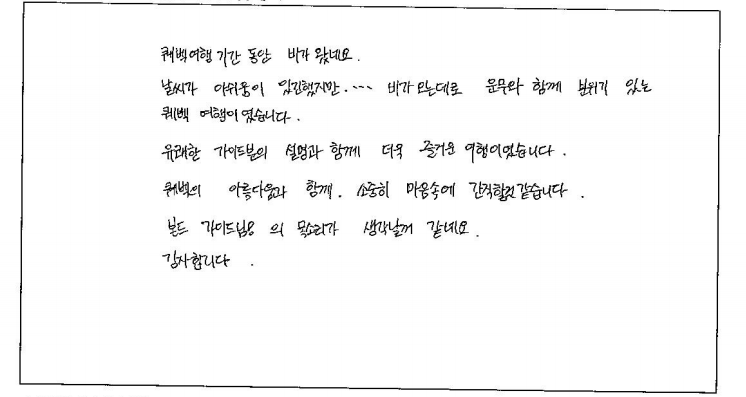 퀘벡여행 기간 동안 비가 왔네요.
날씨가 아쉬움이 있긴했지만.···· 비가 오는데로 운무와 함께 분위기 있는
퀘벡 여행이였습니다.
유쾌한 가이드분의 설명과 함께 더욱 즐거운 여행이었습니다.
퀘벡의 아름다움과 함께. 소중히 마음속에 간직할것 같습니다.
가이드님 의 목소리가 생각날꺼 같네요.
감사합니다.